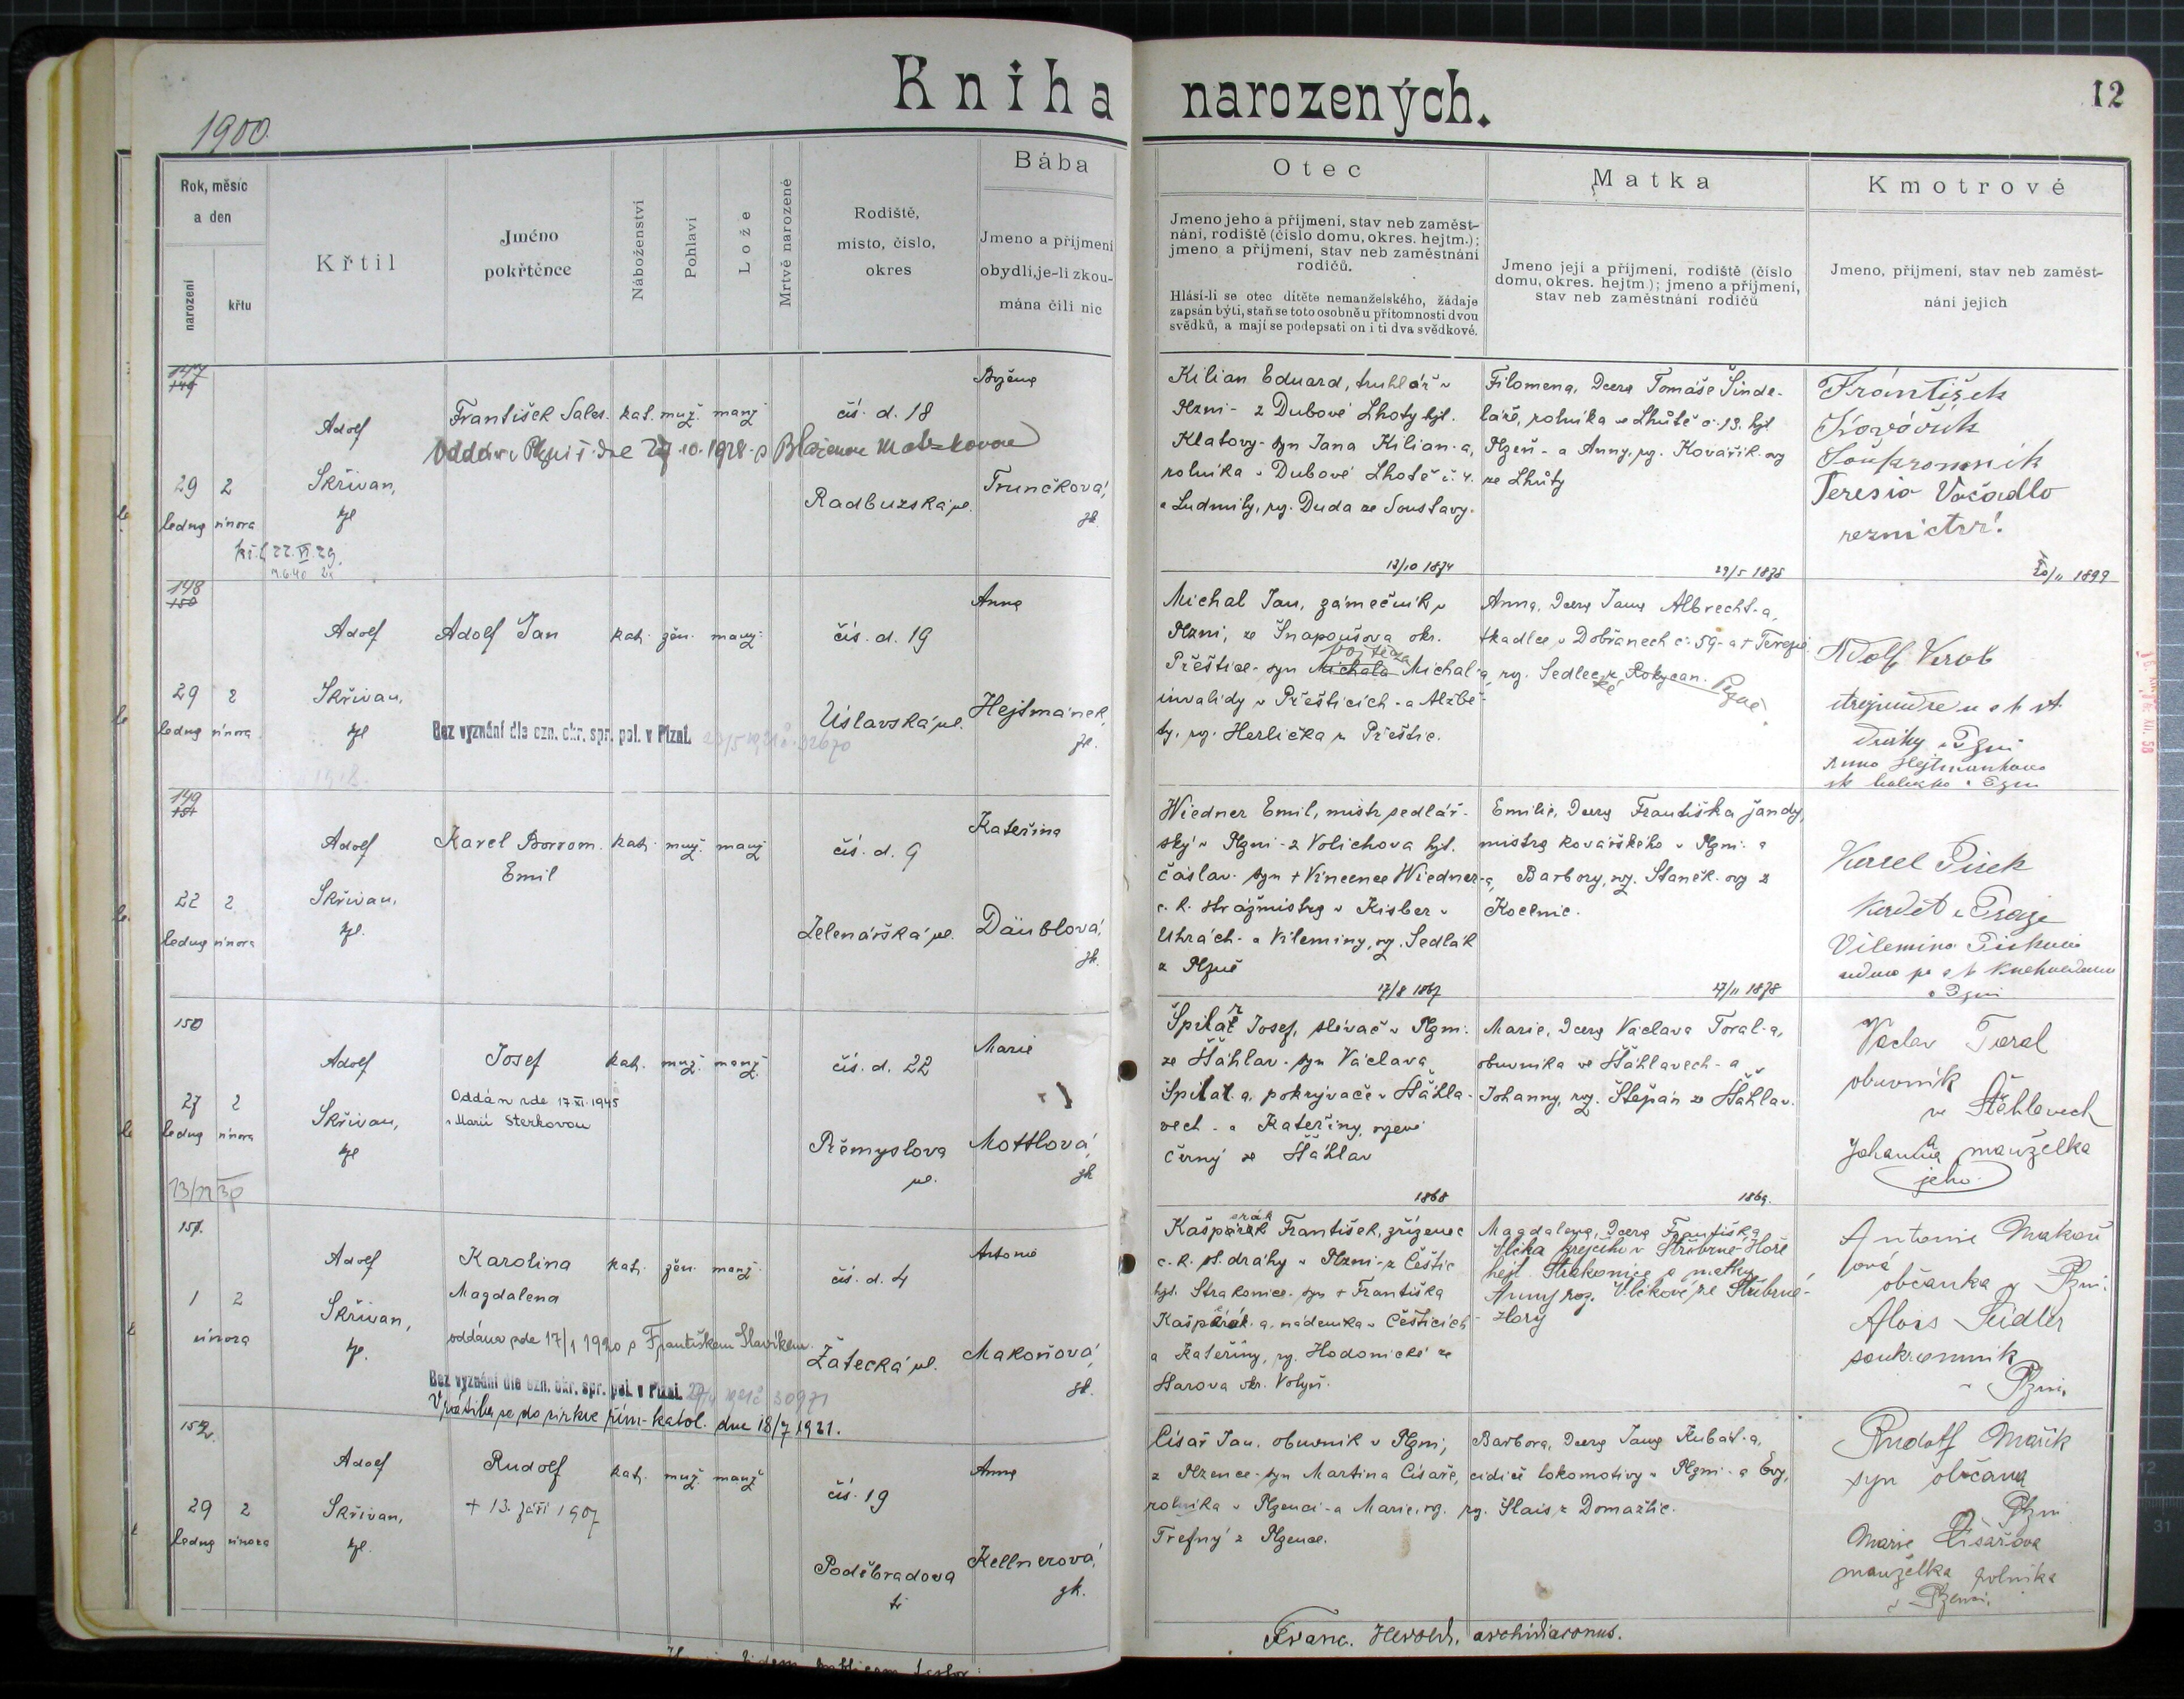 Kniha narozených.
12
1900.
Rok, měsíc
a den
narození
křtu
Křtil
Jméno
pokřtěnce
Náboženství
Pohlaví
Lože
Mrtvě narozené
Rodiště,
místo, číslo,
okres
Bába
Jmeno a příjmení
obydlí, je-li zkou-
mána čili nic
Otec
Jmeno jeho a příjmení, stav neb zaměst-
nání, rodiště (číslo domu, okres. hejtm.);
jmeno a příjmení, stav neb zaměstnání
rodičů.
Hlásí-li se otec dítěte nemanželského, žádaje
zapsán býti, staň se toto osobně u přítomnosti dvou
svědků, a mají se podepsati on i ti dva svědkové.
Matka
Jmeno její a příjmení, rodiště (číslo
domu, okres. hejtm.); jmeno a příjmení,
stav neb zaměstnání rodičů
Kmotrové
Jmeno, příjmení, stav neb zaměst-
nání jejich
147
149
29 2
ledna února
Adolf
Skřivan,
František Sales. kat. muž. manž
čís. d. 18
Radbuzská ul.
Božena
Trunčková,
zk.
Kilian Eduard, truhlář v
Plzni - z Dubové Lhoty hjt.
Klatovy - syn Jana Kilian-a,
rolníka v Dubové Lhotě č. 4.
a Ludmily, roz. Duda ze Soustavy.
Filomena, dcera Tomáše Šinde-
láře, rolníka ve Lhůtě č. 13. hjt
Plzeň - a Anny, roz. Kovářík-ovy
ze Lhůty
František
Kovářík
Soukromník
Teresia Vočadlo
148
150
29 2
ledna února
Adolf
Skřivan,
Adolf Jan kat. žen. manž.
Bez vyznání dle ozn. okr. spr. pol. v Plzni.
čís. d. 19
Úslavská ul.
Anna
Hejtmánek,
zk.
13/10 1874
Michal Jan, zámečník v
Plzni, ze Snopoušova okr.
Přeštice - syn Michala Vojtěcha Michal-a,
invalidy v Přešticích - a Alžbě-
ty, roz. Herlička z Přeštic.
29/5 1875
Anna, dcera Jana Albrecht-a,
tkadlce v Dobřanech č. 59 - a + Terezie
roz. Sedlec z Rokycan.
20/11 1899
Adolf Krob
149
151
22 2
ledna února
Adolf
Skřivan,
Karel Borrom. kat. muž. manž
Emil
čís. d. 9
Zelenářská ul.
Kateřina
Däublová,
zk.
Wiedner Emil, mistr sedlář-
ský v Plzni - z Volichova hjt.
Čáslav - syn + Vincence Wiedner-a,
c. k. strážmistra v Kisber v
Uhrách - a Vileminy, roz. Sedlák
z Plzně
Emilie, dcera Františka Jandy,
mistra kovářského v Plzni - a
Barbory, roz. Staněk-ovy z
Karel Pisek
kadet v Praze
150
27 2
ledna února
Adolf
Skřivan,
Josef kat. muž. manž.
Oddán zde 17.XI.1945
s Marií Sterkovou
čís. d. 22
Přemyslova
ul.
Marie
Mottlová,
zk
17/8 1867
Špilar Josef, slévač v Plzni
ze Šťáhlav - syn Václava
Špilar-a, pokrývače v Šťáhla-
vech - a Kateřiny, rozené
Černý ze Šťáhlav
27/11 1878
Marie, dcera Václava Toral-a,
obuvníka ve Šťáhlavech - a
Johanny, roz. Štěpán ze Šťáhlav.
Václav Toral
obuvník
ve Štěhlavech
Johanna manželka
jeho
151.
1 2
února
Adolf
Skřivan,
Karolina kat. žen. manž.
Magdalena
oddána zde 17/1 1920 s Františkem Slavíkem.
Bez vyznání dle ozn. okr. spr. pol. v Plzni.
Vrátila se do církve řím-katol. dne 18/7 1921.
čís. d. 4
Žatecká ul.
Antonie
Makoňová,
zk.
1868
Kašpárek František, zřízenec
c. k. st. dráhy v Plzni - z Čestic
hjt. Strakonice - syn + Františka
Kašpárek-a, nádeníka v Česticích
a Kateřiny, roz. Hodonické ze
Harova okr. Volyň.
1869.
Magdalena, dcera Františka
Vlčka krejčího v Stříbrné Hoře
hejt. Strakonice a matky
Anny roz. Vlčkové ze Stříbrné-
Hory
Antonie Makoň
ová
občanka v Plzni.
Alois Seidler
soukromník
v Plzni
152.
29 2
ledna února
Adolf
Skřivan,
Rudolf kat. muž. manž
+ 13. září 1907
čís. 19
Poděbradova
tř
Anna
Kellnerová,
zk.
Císař Jan, obuvník v Plzni,
z Plzence - syn Martina Císaře,
rolníka v Plzenci - a Marie, roz.
Trefný z Plzence.
Barbora, dcera Jana Kubát-a,
cídiče lokomotivy v Plzni - a Evy,
roz. Šlais z Domažlic.
Rudolf Mařík
syn občana
Plzni
Marie Císařova
manželka rolníka
v Plzenci.
Franc. Herold, archidiaconus.